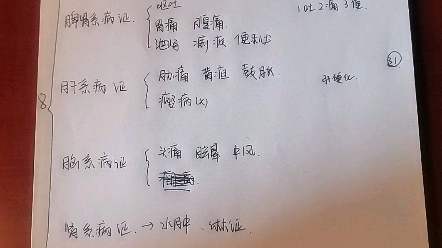 呕吐
脾胃系病证 胃痛 腹痛 1吐2痛3便
泄泻 痢疾 便秘
肝系病证 胁痛 黄疸 鼓胀 肝硬化
瘿病(x)
8
脑系病证 头痛 眩晕 中风
肾系病证 → 水肿 淋证